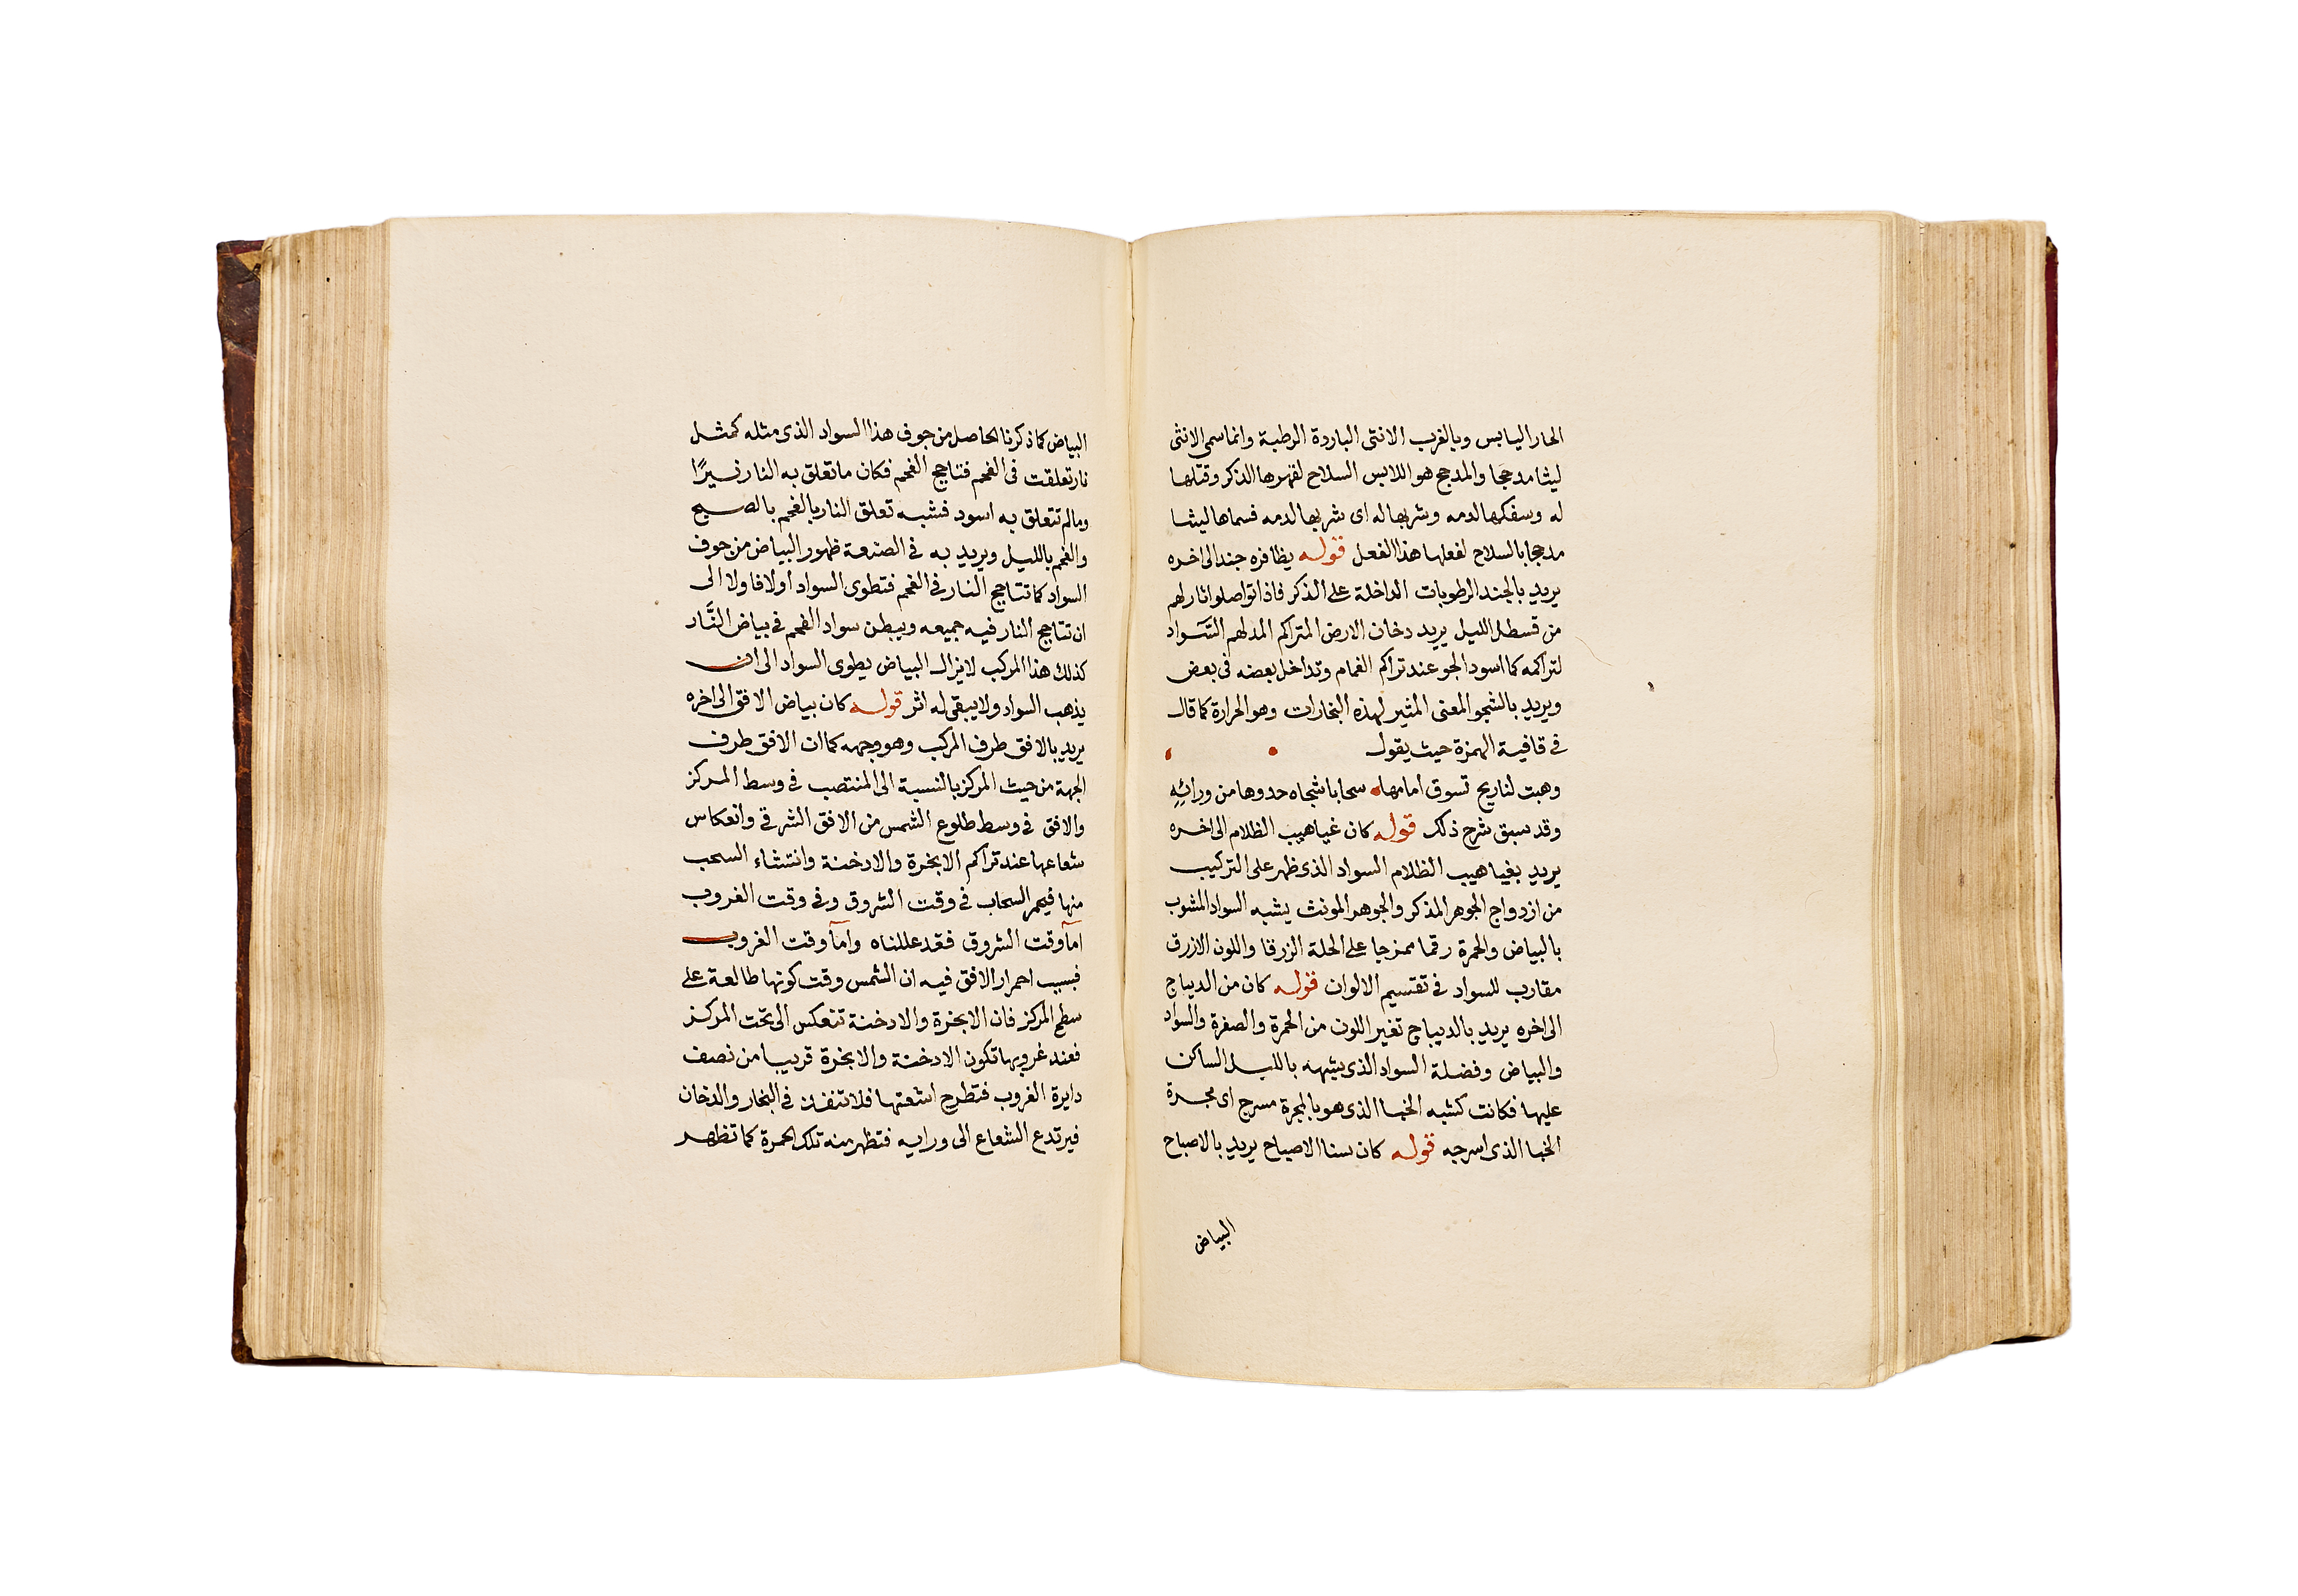 الحار اليابس وبالغرب الانثى الباردة الرطبة وانما سمى الانثى
ليثا مدججا والمدجج هو اللابس السلاح لقهرها الذكر وقتلها
له وسفكها لدمه وشربها له اى شربها لدمه فسماها ليثا
مدججا بالسلاح لفعلها هذا الفعل قوله يظافره جند الى اخره
يريد بالجند الرطوبات الداخلة على الذكر فاذا تواصلوا اثار لهم
من قسطل الليل يريد دخان الارض المتراكم المدلهم السواد
لتراكمه كما اسود الجو عند تراكم الغمام وتداخل بعضه فى بعض
ويريد بالشجو المعنى المثير لهذه البخارات وهو الحرارة كما قال
فى قافية الهمزة حيث يقول
وهبت لنا ريح تسوق امامها سحابا شجاه حدوها من ورائه
وقد سبق شرح ذلك قوله كان غياهيب الظلام الى اخره
يريد بغياهيب الظلام السواد الذى ظهر على التركيب
من ازدواج الجوهر المذكر والجوهر المونث يشبه السواد المشوب
بالبياض والحمرة رقما ممزجا على الحلة الزرقا واللون الازرق
مقارب للسواد فى تقسيم الالوان قوله كان من الديباج
الى اخره يريد بالديباج تغير اللون من الحمرة والصفرة والسواد
والبياض وفضلة السواد الذى يشبهه بالليل الساكن
عليها فكانت كشبه الخبا الذى هو بالمجرة مسرج اى مجرة
الخبا الذى اسرجه قوله كان سنا الاصباح يريد بالاصباح
البياض
البياض كما ذكرنا الحاصل من جوف هذا السواد الذى مثله كمثل
نار تعلقت فى الفحم فتاجج الفحم فكان ما تعلق به النار نيرًا
وما لم تتعلق به اسود فشبه تعلق النار بالفحم بالصبح
والفحم بالليل ويريد به فى الصنعة ظهور البياض من جوف
السواد كما تتاجج النار فى الفحم فتطوى السواد اولا فاولا الى
ان تتاجج النار فيه جميعه ويبطن سواد الفحم فى بياض النَّار
كذلك هذا المركب لا يزال البياض يطوى السواد الى ان
يذهب السواد ولا يبقى له اثر قوله كان بياض الافق الى اخره
يريد بالافق طرف المركب وهو وجهه كما ان الافق طرف
الجهة من حيث المركز بالنسبة الى المنتصب فى وسط المركز
والافق فى وسط طلوع الشمس من الافق الشرقى وانعكاس
شعاعها عند تراكم الابخرة والادخنة وانتشاء السحب
منها فيحمر السحاب فى وقت الشروق وفى وقت الغروب
امآ وقت الشروق فقد عللناه وامآ وقت الغروب
فبسبب احمرار الافق فيه ان الشمس وقت كونها طالعة على
سطح المركز فان الابخرة والادخنة تنعكس الى تحت المركز
فعند غروبها تكون الادخنة والابخرة قريبا من نصف
دايرة الغروب فتطرح اشعتها فلا تنفذ فى البخار والدخان
فيرتدع الشعاع الى ورايه فتظهر منه تلك الحمرة كما تظهر